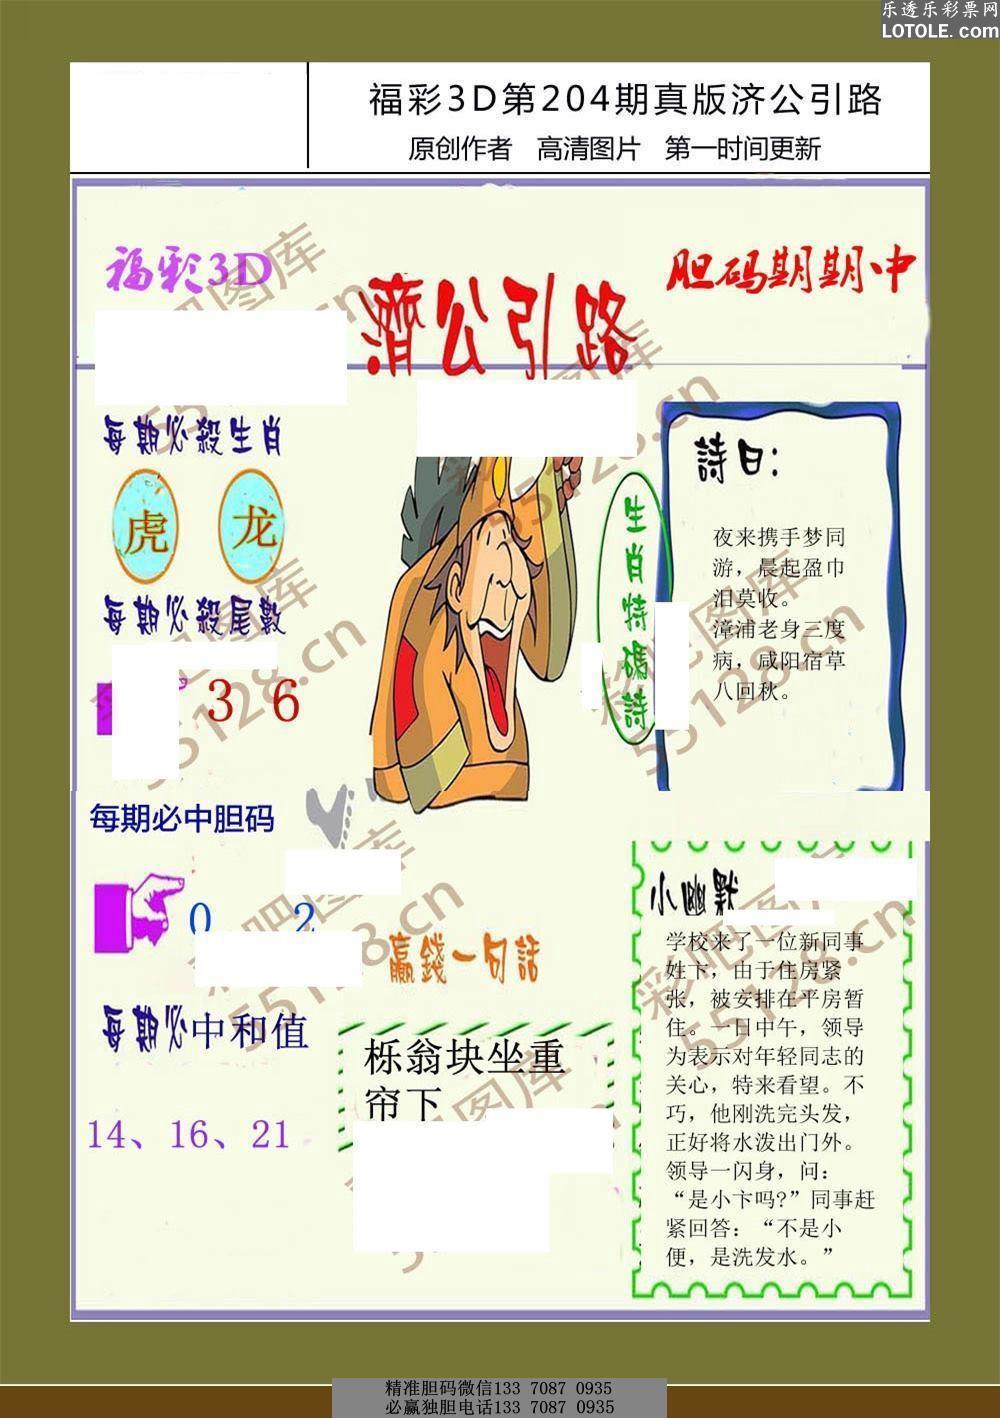 乐透乐彩票网
LOTOLE.com
福彩3D第204期真版济公引路
原创作者 高清图片 第一时间更新
福彩3D
濟公引路
胆码期期中
每期必殺生肖
虎 龙
每期必殺尾數
3 6
每期必中胆码
0 2
每期必中和值
14、16、21
赢錢一句話
栎翁块坐重
帘下
生肖特碼詩
詩曰：
夜来携手梦同
游，晨起盈巾
泪莫收。
漳浦老身三度
病，咸阳宿草
八回秋。
小幽默
学校来了一位新同事
姓卞，由于住房紧
张，被安排在平房暂
住。一日中午，领导
为表示对年轻同志的
关心，特来看望。不
巧，他刚洗完头发，
正好将水泼出门外。
领导一闪身，问：
“是小卞吗?”同事赶
紧回答：“不是小
便，是洗发水。”
彩吧图库
55128.cn
精准胆码微信133 7087 0935
必赢独胆电话133 7087 0935